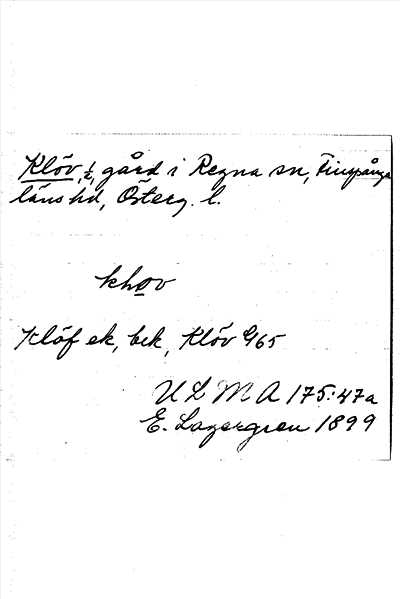 Klöv, ½, gård i Regna sn, Finspånga
läns hd, Österg. l.
khov
Klöf ek, bek, Klöv 65
ULMA 175:47a
E. Lagergren 1899